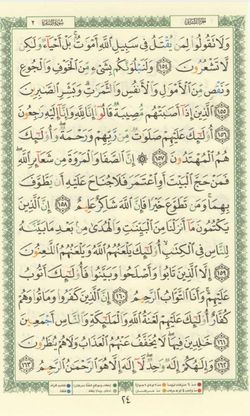 الجزء الثاني
سورة البقرة ٢
وَلَا تَقُولُوا۟ لِمَن يُقْتَلُ فِى سَبِيلِ ٱللَّهِ أَمْوَٰتٌۢ ۚ بَلْ أَحْيَآءٌ وَلَٰكِن
لَّا تَشْعُرُونَ ١٥٤ وَلَنَبْلُوَنَّكُم بِشَىْءٍ مِّنَ ٱلْخَوْفِ وَٱلْجُوعِ
وَنَقْصٍ مِّنَ ٱلْأَمْوَٰلِ وَٱلْأَنفُسِ وَٱلثَّمَرَٰتِ ۗ وَبَشِّرِ ٱلصَّٰبِرِينَ
١٥٥ ٱلَّذِينَ إِذَآ أَصَٰبَتْهُم مُّصِيبَةٌ قَالُوٓا۟ إِنَّا لِلَّهِ وَإِنَّآ إِلَيْهِ رَٰجِعُونَ
١٥٦ أُو۟لَٰٓئِكَ عَلَيْهِمْ صَلَوَٰتٌ مِّن رَّبِّهِمْ وَرَحْمَةٌ ۖ وَأُو۟لَٰٓئِكَ
هُمُ ٱلْمُهْتَدُونَ ١٥٧ ۞ إِنَّ ٱلصَّفَا وَٱلْمَرْوَةَ مِن شَعَآئِرِ ٱللَّهِ ۖ
فَمَنْ حَجَّ ٱلْبَيْتَ أَوِ ٱعْتَمَرَ فَلَا جُنَاحَ عَلَيْهِ أَن يَطَّوَّفَ
بِهِمَا ۚ وَمَن تَطَوَّعَ خَيْرًا فَإِنَّ ٱللَّهَ شَاكِرٌ عَلِيمٌ ١٥٨ إِنَّ ٱلَّذِينَ
يَكْتُمُونَ مَآ أَنزَلْنَا مِنَ ٱلْبَيِّنَٰتِ وَٱلْهُدَىٰ مِنۢ بَعْدِ مَا بَيَّنَّٰهُ
لِلنَّاسِ فِى ٱلْكِتَٰبِ ۙ أُو۟لَٰٓئِكَ يَلْعَنُهُمُ ٱللَّهُ وَيَلْعَنُهُمُ ٱللَّٰعِنُونَ
١٥٩ إِلَّا ٱلَّذِينَ تَابُوا۟ وَأَصْلَحُوا۟ وَبَيَّنُوا۟ فَأُو۟لَٰٓئِكَ أَتُوبُ
عَلَيْهِمْ ۚ وَأَنَا ٱلتَّوَّابُ ٱلرَّحِيمُ ١٦٠ إِنَّ ٱلَّذِينَ كَفَرُوا۟ وَمَاتُوا۟ وَهُمْ
كُفَّارٌ أُو۟لَٰٓئِكَ عَلَيْهِمْ لَعْنَةُ ٱللَّهِ وَٱلْمَلَٰٓئِكَةِ وَٱلنَّاسِ أَجْمَعِينَ
١٦١ خَٰلِدِينَ فِيهَا ۖ لَا يُخَفَّفُ عَنْهُمُ ٱلْعَذَابُ وَلَا هُمْ يُنظَرُونَ
١٦٢ وَإِلَٰهُكُمْ إِلَٰهٌ وَٰحِدٌ ۖ لَّآ إِلَٰهَ إِلَّا هُوَ ٱلرَّحْمَٰنُ ٱلرَّحِيمُ ١٦٣
٢٤